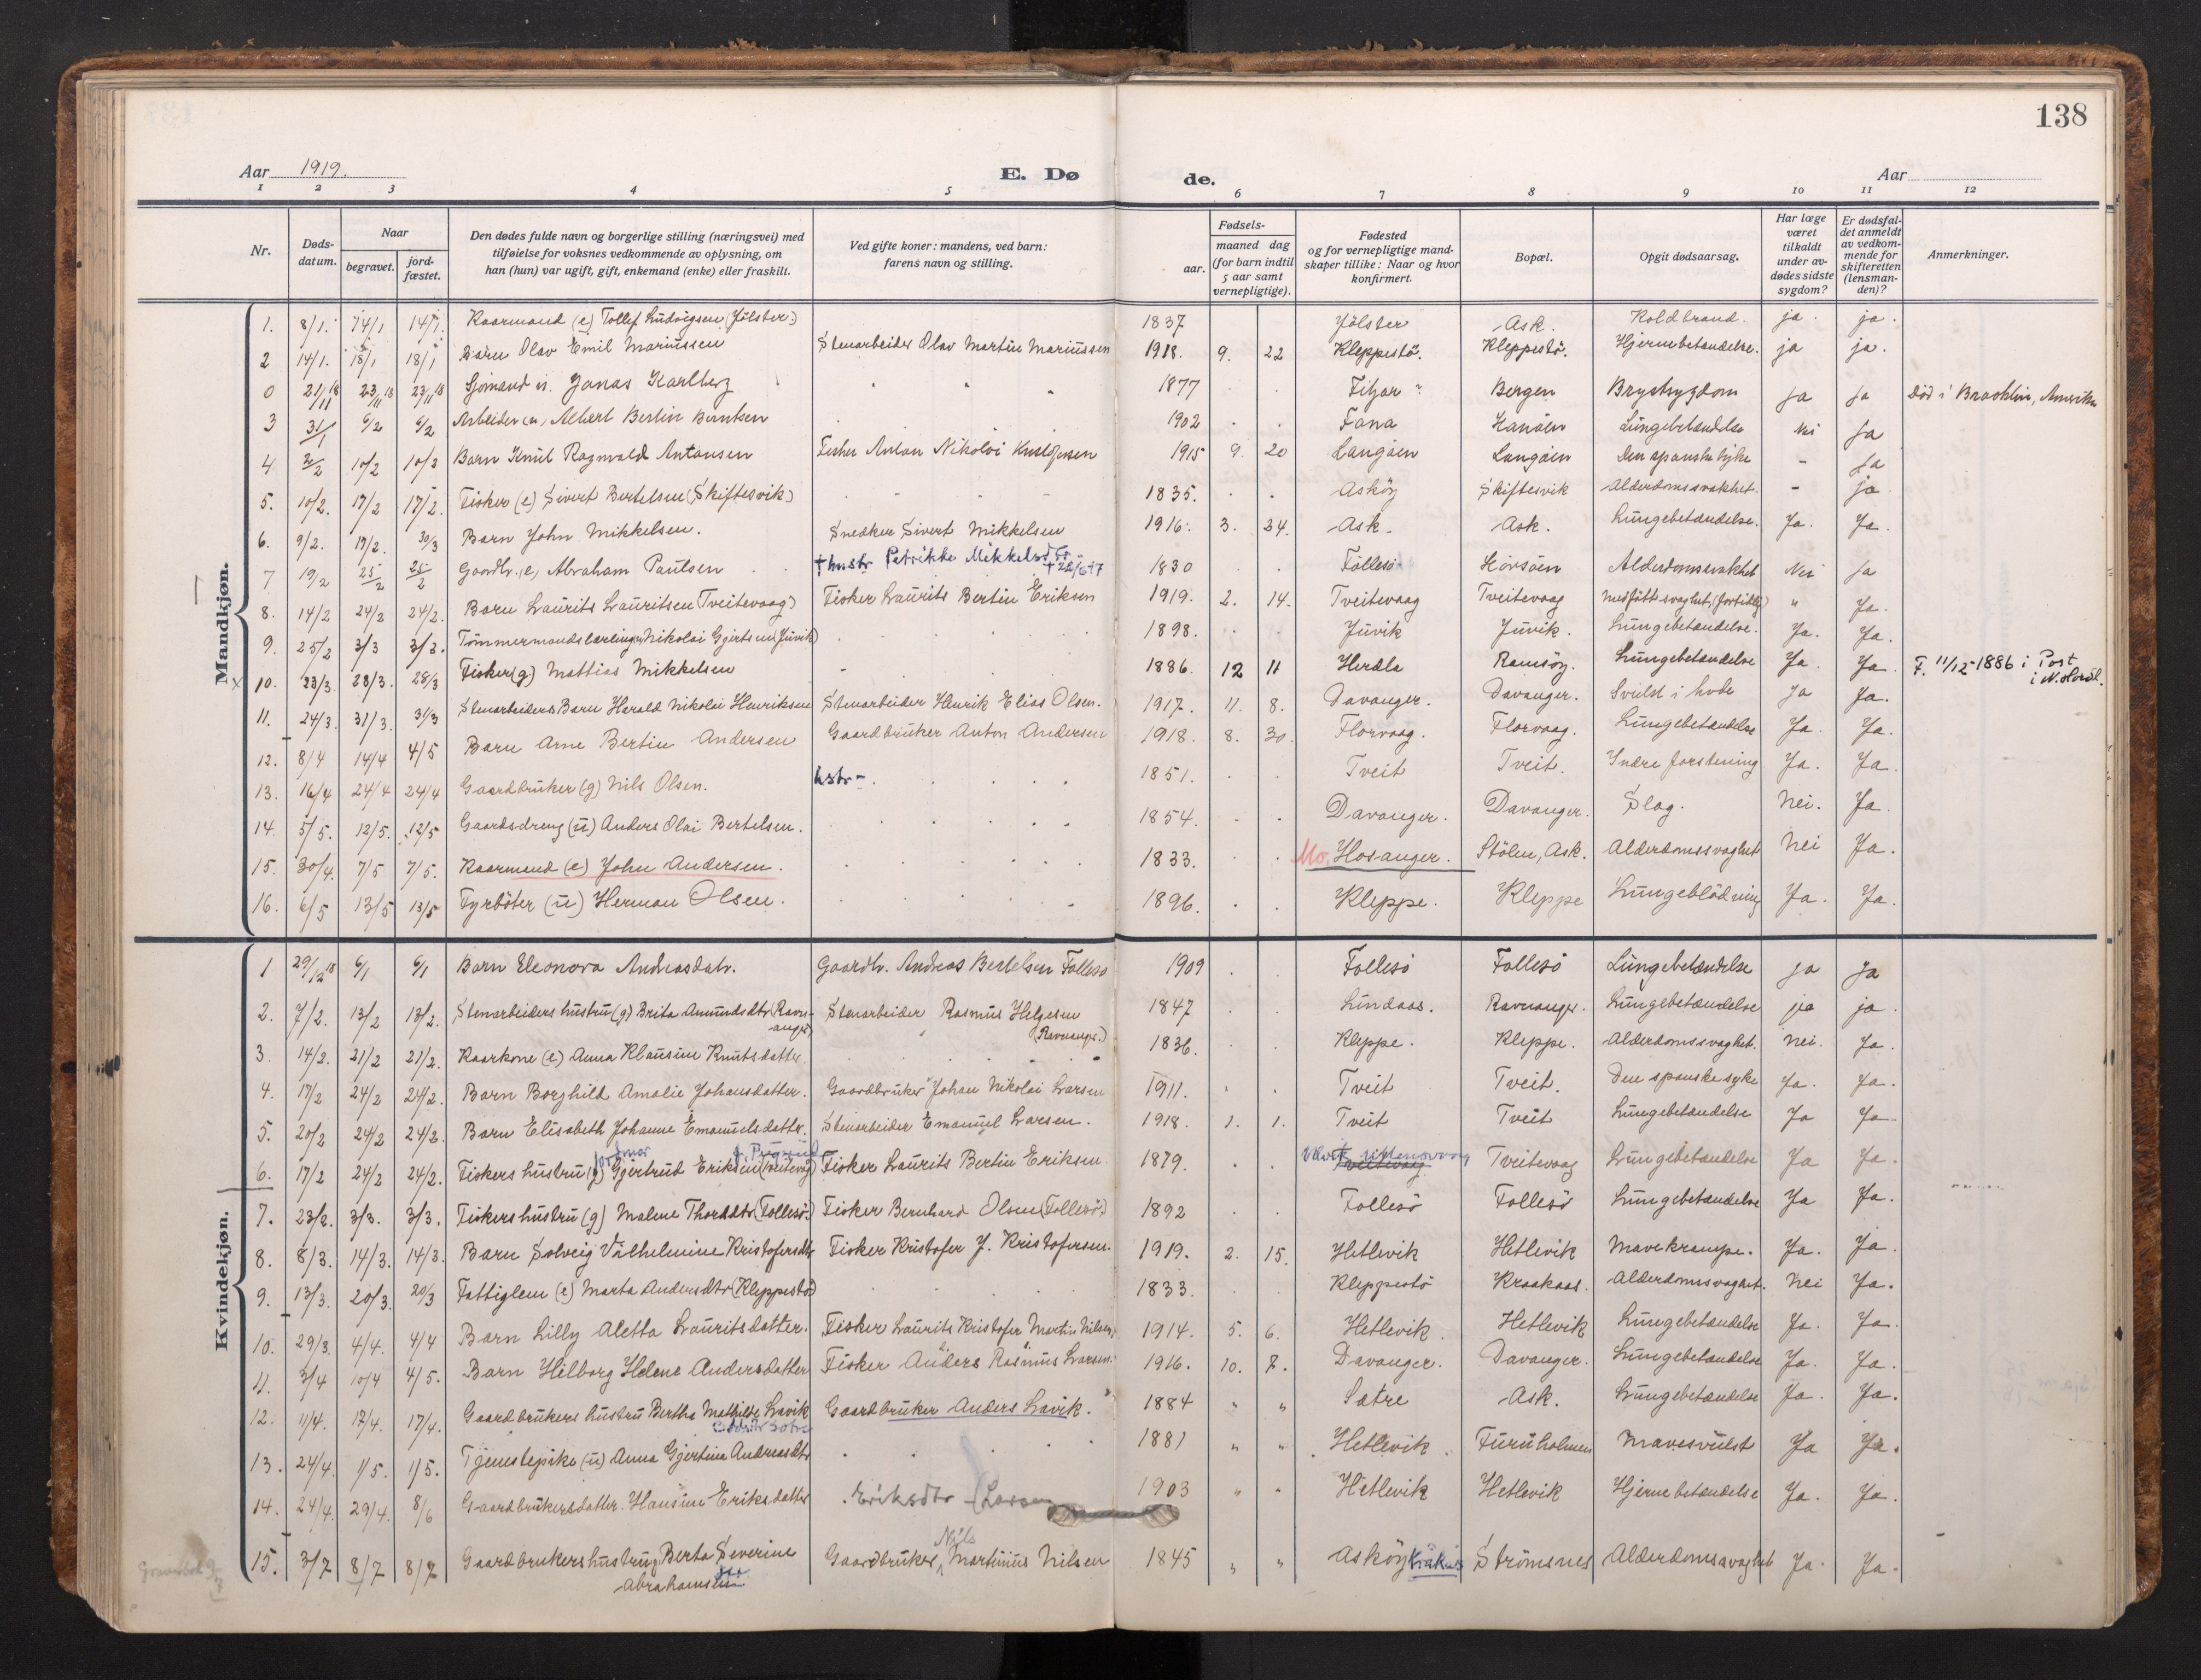 138
Aar 1919.
E. Dø
de.
Aar
1 2 3 4 5 6 7 8 9 10 11 12
Nr.
Døds-
datum.
Naar
begravet.
jord-
fæstet.
Den dødes fulde navn og borgerlige stilling (næringsvei) med
tilføielse for voksnes vedkommende av oplysning, om
han (hun) var ugift, gift, enkemand (enke) eller fraskilt.
Ved gifte koner: mandens, ved barn:
farens navn og stilling.
Fødsels-
aar.
maaned dag
(for barn indtil
5 aar samt
vernepligtige).
Fødested
og for vernepligtige mand-
skaper tillike: Naar og hvor
konfirmert.
Bopæl.
Opgit dødsaarsag.
Har læge
været
tilkaldt
under av-
dødes sidste
sygdom?
Er dødsfal-
det anmeldt
av vedkom-
mende for
skifteretten
(lensman-
den)?
Anmerkninger.
Mandkjøn.
1. 8/1. 14/1 14/1. Kaarmand (e) Tollef Ludvigsen (Jölster) 1837 Jölster Ask. Koldbrand. ja. ja.
2 14/1. 18/1 18/1 Barn Olav Emil Mariussen Stenarbeider Olav Martin Mariussen 1918. 9. 22 Kleppestö. Kleppestö. Hjernebetændelse. ja ja.
0 21/11 18 23/11 18 23/11 18 Sjömand u. Jonas Karlberg 1877 Fitjar Bergen Brystsygdom Ja Ja Död i Brooklin, Amerika
3 31/1 6/2 6/2 Arbeider (u) Albert Bertin Berntsen 1902 Fana Hanöen Lungebetændelse Nei Ja
4 2/2 10/2 10/2 Barn Knut Ragnvald Antonsen Fisker Anton Nikolai 1915 9. 20 Langöen Langöen Den spanske syke - Ja
5. 10/2. 17/2 17/2. Fisker (e) Sivert Bertelsen (Skiftesvik) 1835. Asköy Skiftesvik Alderdomssvakhet. - ja
6. 9/2. 19/2. 30/3 Barn John Mikkelsen. Snedker Sivert Mikkelsen 1916. 3. 24. Ask. Ask. Lungebetændelse. Ja. Ja.
7 19/2 25/2 25/2 Gaardbr. (e) Abraham Paulsen + hustr Petrikke Mikkelsdtr 1830 Follesö Horsöen Alderdomssvakhet Nei Ja
8. 14/2 24/2 24/2. Barn Laurits Lauritsen (Tveitevaag) Fisker Laurits Bertin Eriksen 1919. 2. 14. Tveitevaag Tveitevaag medfödt svaghet (fortidlig) " Ja.
9. 25/2 3/3 3/3. Tömmermandslærling (u) Nikolai Gjertsen (Juvik) 1898. Juvik Juvik. Lungebetændelse. Ja. Ja.
x 10. 23/3. 28/3. 28/3 Fisker (g) Mattias Mikkelsen 1886. 12 11 Herdla Ramsöy. Lungebetændelse Ja. Ja. F. 11/12-1886 i Post
i N. Hordl.
11. 24/3. 31/3. 31/3 Stenarbeiders Barn Harald Nikolai Henriksen Stenarbeider Henrik Elias Olsen. 1917. 11. 8. Davanger. Davanger. Svulst i hode Ja Ja.
12. 8/4 14/4 4/5 Barn Arne Bertin Andersen Gaardbruker Anton Andersen 1918. 8. 30. Florvaag. Florvaag. Lungebetændelse Ja. Ja.
13. 16/4 24/4 24/4 Gaardbruker (g) Nils Olsen. hstr - 1851. Tveit Tveit. Indre forstening Ja. Ja.
14. 5/5. 12/5. 12/5 Gaardsdreng (u) Anders Olai Bertelsen. 1854. Davanger. Davanger. Slag. Nei. Ja.
15. 30/4. 7/5 7/5. Kaarmand (e) John Andersen. 1833. Mo. Hosanger. Stölen, Ask. Alderdomssvaghet Nei Ja.
16. 6/5 13/5 13/5 Fyrböter (u) Herman Olsen. 1896. Kleppe. Kleppe Lungeblödning Ja. Ja.
Kvindekjøn.
1 29/12 18 6/1 6/1 Barn Eleonora Andreasdatr. Gaardbr. Andreas Bertelsen Follesö 1909 Follesö Follesö Lungebetændelse ja Ja
2. 7/2. 13/2 13/2. Stenarbeiders hustru (g) Brita Amundsdtr (Ravn-
anger) Stenarbeider Rasmus Helgesen
(Ravnanger.) 1847 Lindaas. Ravnanger. Lungebetændelse ja ja
3. 14/2. 21/2 21/2. Kaarkone (e) Anna Klausine Knutsdatter. 1836. Kleppe. Kleppe. Alderdomssvaghet. Nei. Ja.
4. 17/2 24/2 24/2. Barn Borghild Amalie Johansdatter. Gaardbruker Johan Nikolai Larsen 1911. Tveit Tveit. Den spanske syke Ja. Ja.
5. 20/2 24/2 24/2. Barn Elisabeth Johanne Emanuelsdatter. Stenarbeider Emanuel Larsen. 1918. 1. 1. Tveit Tveit Lungebetændelse Ja Ja
6. 17/2 24/2 24/2. Fiskers hustru (g) Gjertrud Eriksen (Tveitevaag) Fisker Laurits Bertin Eriksen 1879. Tveitevaag Tveitevaag Lungebetændelse Ja Ja.
7. 23/2. 3/3. 3/3. Fiskers hustru (g) Malene Thordtr (Follesö) Fisker Bernhard Olsen (Follesö) 1892 Follesö Follesö Lungebetændelse Ja Ja.
8. 8/3. 14/3. 14/3. Barn Solveig Vilhelmine Kristofersdtr Fisker Kristofer J. Kristofersen. 1919. 2. 15. Hetlevik Hetlevik Mavekrampe. Ja. Ja.
9. 13/3. 20/3. 20/3 Fattiglem (e) Marta Andersdtr (Kleppestö) 1833. Kleppestö Kraakaas. Alderdomssvaghet. Nei Ja.
10. 29/3. 4/4. 4/4 Barn Lilly Aletta Lauritsdatter. Fisker Laurits Kristofer Martin Nilsen. 1914. 5. 6. Hetlevik. Hetlevik Lungebetændelse Ja. Ja.
11. 3/4 10/4 4/5. Barn Hilborg Helene Andersdatter Fisker Anders Rasmus Larsen. 1916. 10. 7. Davanger. Davanger. Lungebetændelse Ja. Ja.
12. 11/4. 17/4. 17/4. Gaardbrukers hustru Bertha Mathilde Lavik Gaardbruker Anders Lavik. 1884 " " Sætre Ask. Lungebetændelse Ja. Ja.
13. 24/4. 1/5. 1/5. Tjenestepike (u) Anna Gjertina Andreasdtr 1881 " " Hetlevik. Furuholmen Mavesvulst Ja Ja.
14. 24/4. 29/4. 8/6 Gaardbrukersdatter. Hansine Eriksdatter Eriksdtr (Larsen 1903 " " Hetlevik Hetlevik Hjernebetændelse Ja. Ja.
15. 3/7 8/7 8/7 Gaardbrukers hustru Berta Severine
Abrahamsen Gaardbruker, Nils Martinus Nilsen 1845 " " Asköy Kråkås Strömsnes Alderdomssvaghet Ja. Ja.